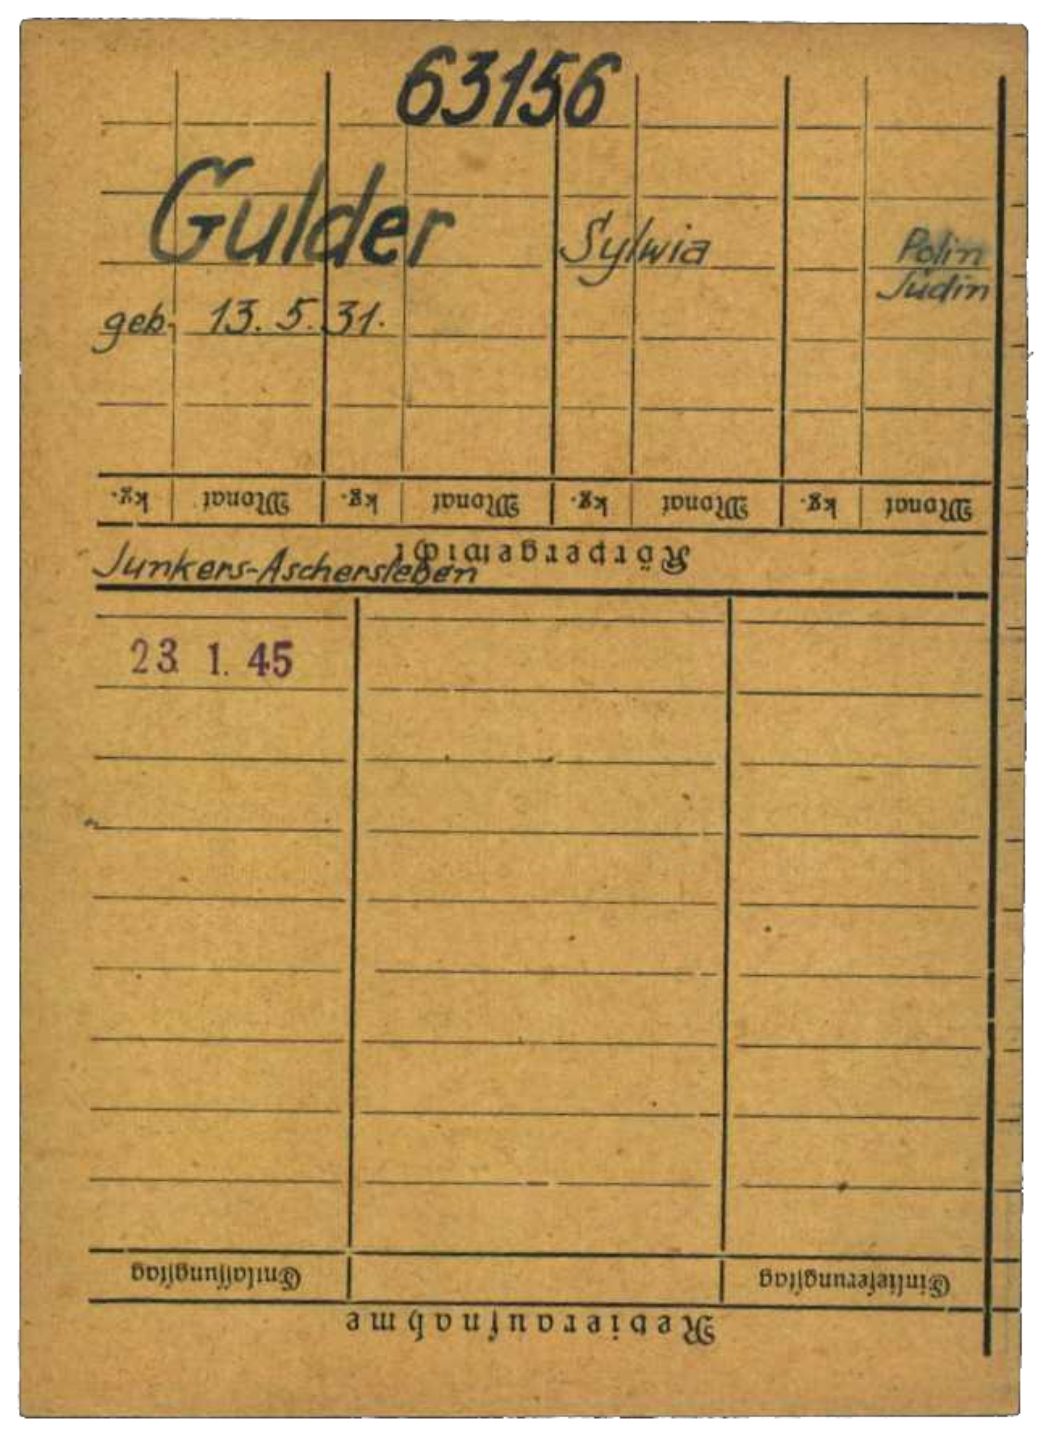 63156
Gulder Sylwia Polin
Jüdin
geb. 13. 5. 31.
kg. Monat kg. Monat kg. Monat kg. Monat
Körpergewicht
Junkers-Aschersleben
23. 1. 45
Entlassungstag Einlieferungstag
Revieraufnahme